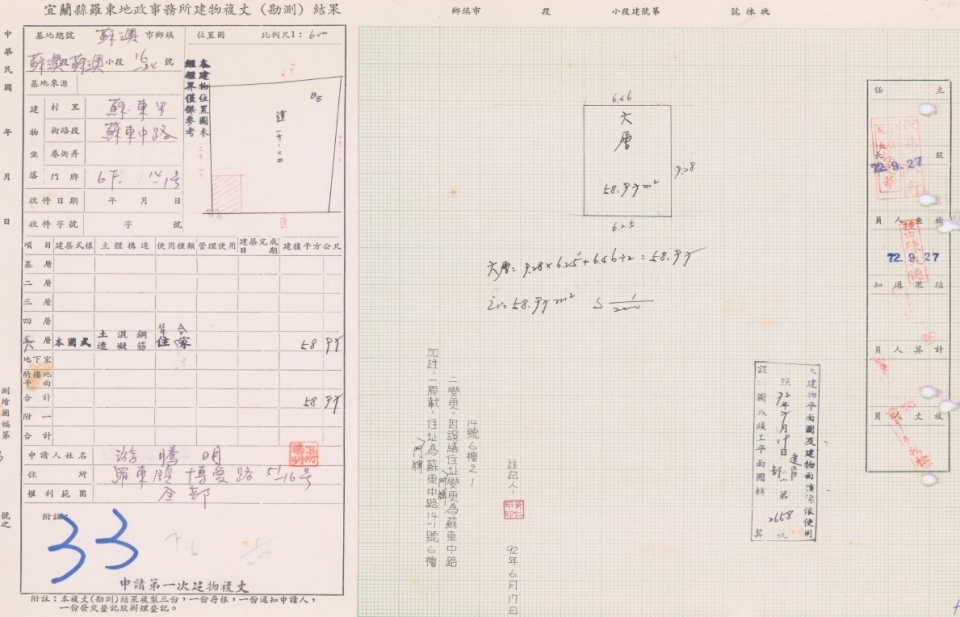 宜蘭縣羅東地政事務所建物複丈(勘測)結果
鄉鎮市 段 小段建號第 號 棟次
中華民國 年 月 日
基地總號 蘇澳 市鄉鎮
蘇澳段蘇澳小段 號
基地來源
建物坐落
村里 蘇東里
街路段 蘇東中路
巷街弄
門牌 6F. 14-1號
收件日期 年 月 日
收件字號 字 號
位置圖 比例尺1:600
本建物位置圖末
鑑界僅係參考
項目 建築式樣 主體構造 使用種類 管理使用 建築完成日期 建積平方公尺
基層
二層
三層
四層
六層 本國式 鋼筋混凝土造 集合住家 58 97
地下室
騎樓地平面
合計 58 97
附一
合計
申請人姓名 游騰明
住所 羅東鎮博愛路51-16号
權利範圍 全部
附註:
33
申請第一次建物複丈
附註:本複丈(勘測)結果複製三份,一份存根,一份通知申請人,
一份發交登記股辦理登記。
測繪圖幅第 號之
6.46
六層
58.97m²
9.28
6.25
六層= 9.28×6.25+6.46÷2=58.97
58.97m²
加註:一原載,住址為蘇東中路14-1號6樓
二變更,因誤繕住址變更為蘇東中路
14號6樓之1
門牌
門牌
註記人:
92年6月17日
本建物平面圖及建物面積係依使用
設計圖或竣工平面圖轉
2658
主任
股長
72.9.27
檢查人員
72.9.27
結果通知
計算人員
複丈人員